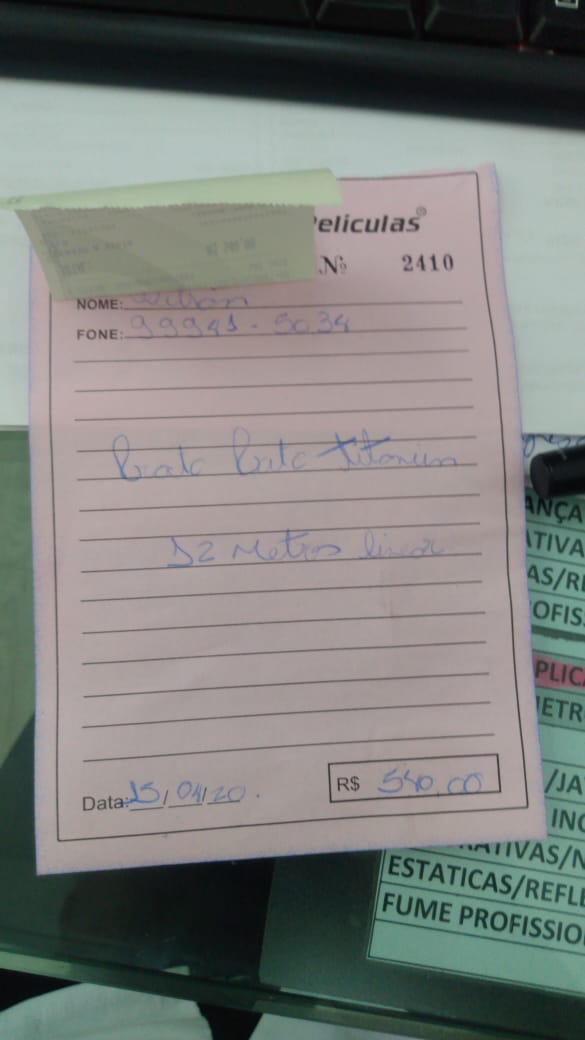 Peliculas®
Nº 2410
NOME: Wilson
FONE: 99941-5034
Preto Titanium
12 Metros linear
Data: 15/04/20.
R$ 540,00
ANÇA
ATIVA
AS/RE
OFIS
PLICA
METR
/JA
INC
RATIVAS/N
ESTATICAS/REFLE
FUME PROFISSIO